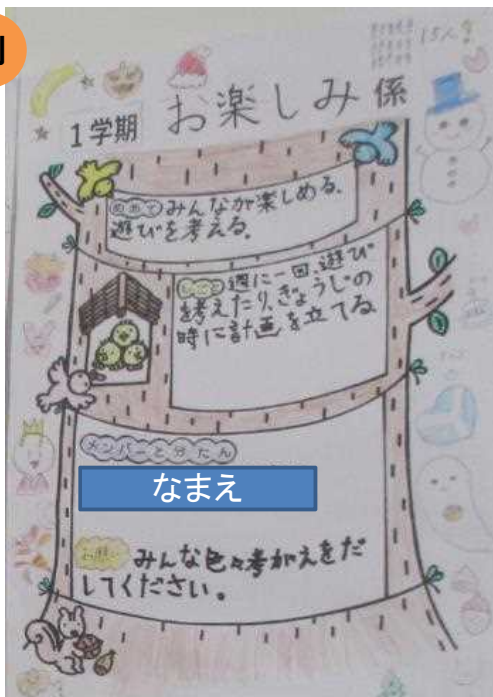 例
15人
1学期
お楽しみ係
めあて みんなが楽しめる、
遊びを考える。
しごと 週に一回、遊び
を考えたり、ぎょうじの
時に計画を立てる
メンバーと分たん
なまえ
お願い みんな色々考がえをだ
してください。